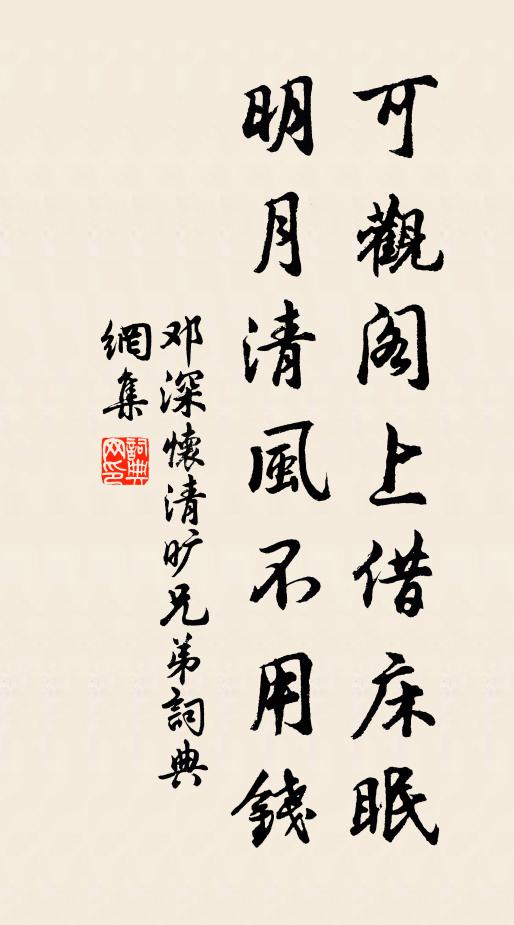 可觀阁上借床眠
明月清風不用錢
邓深懷清旷兄弟詞典
網集
詞典網印